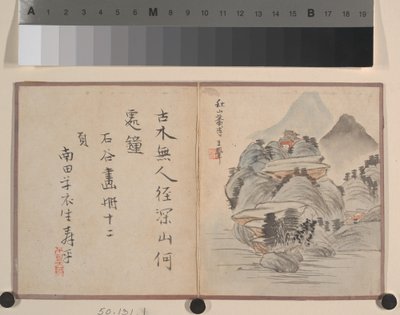 A 1 2 3 4 5 6 M 8 9 10 11 12 13 14 15 B 17 18 19
秋山蕭寺 王翬
古木無人徑深山何
處鐘
石谷畫冊十二
頁
南田草衣生壽平
50.131